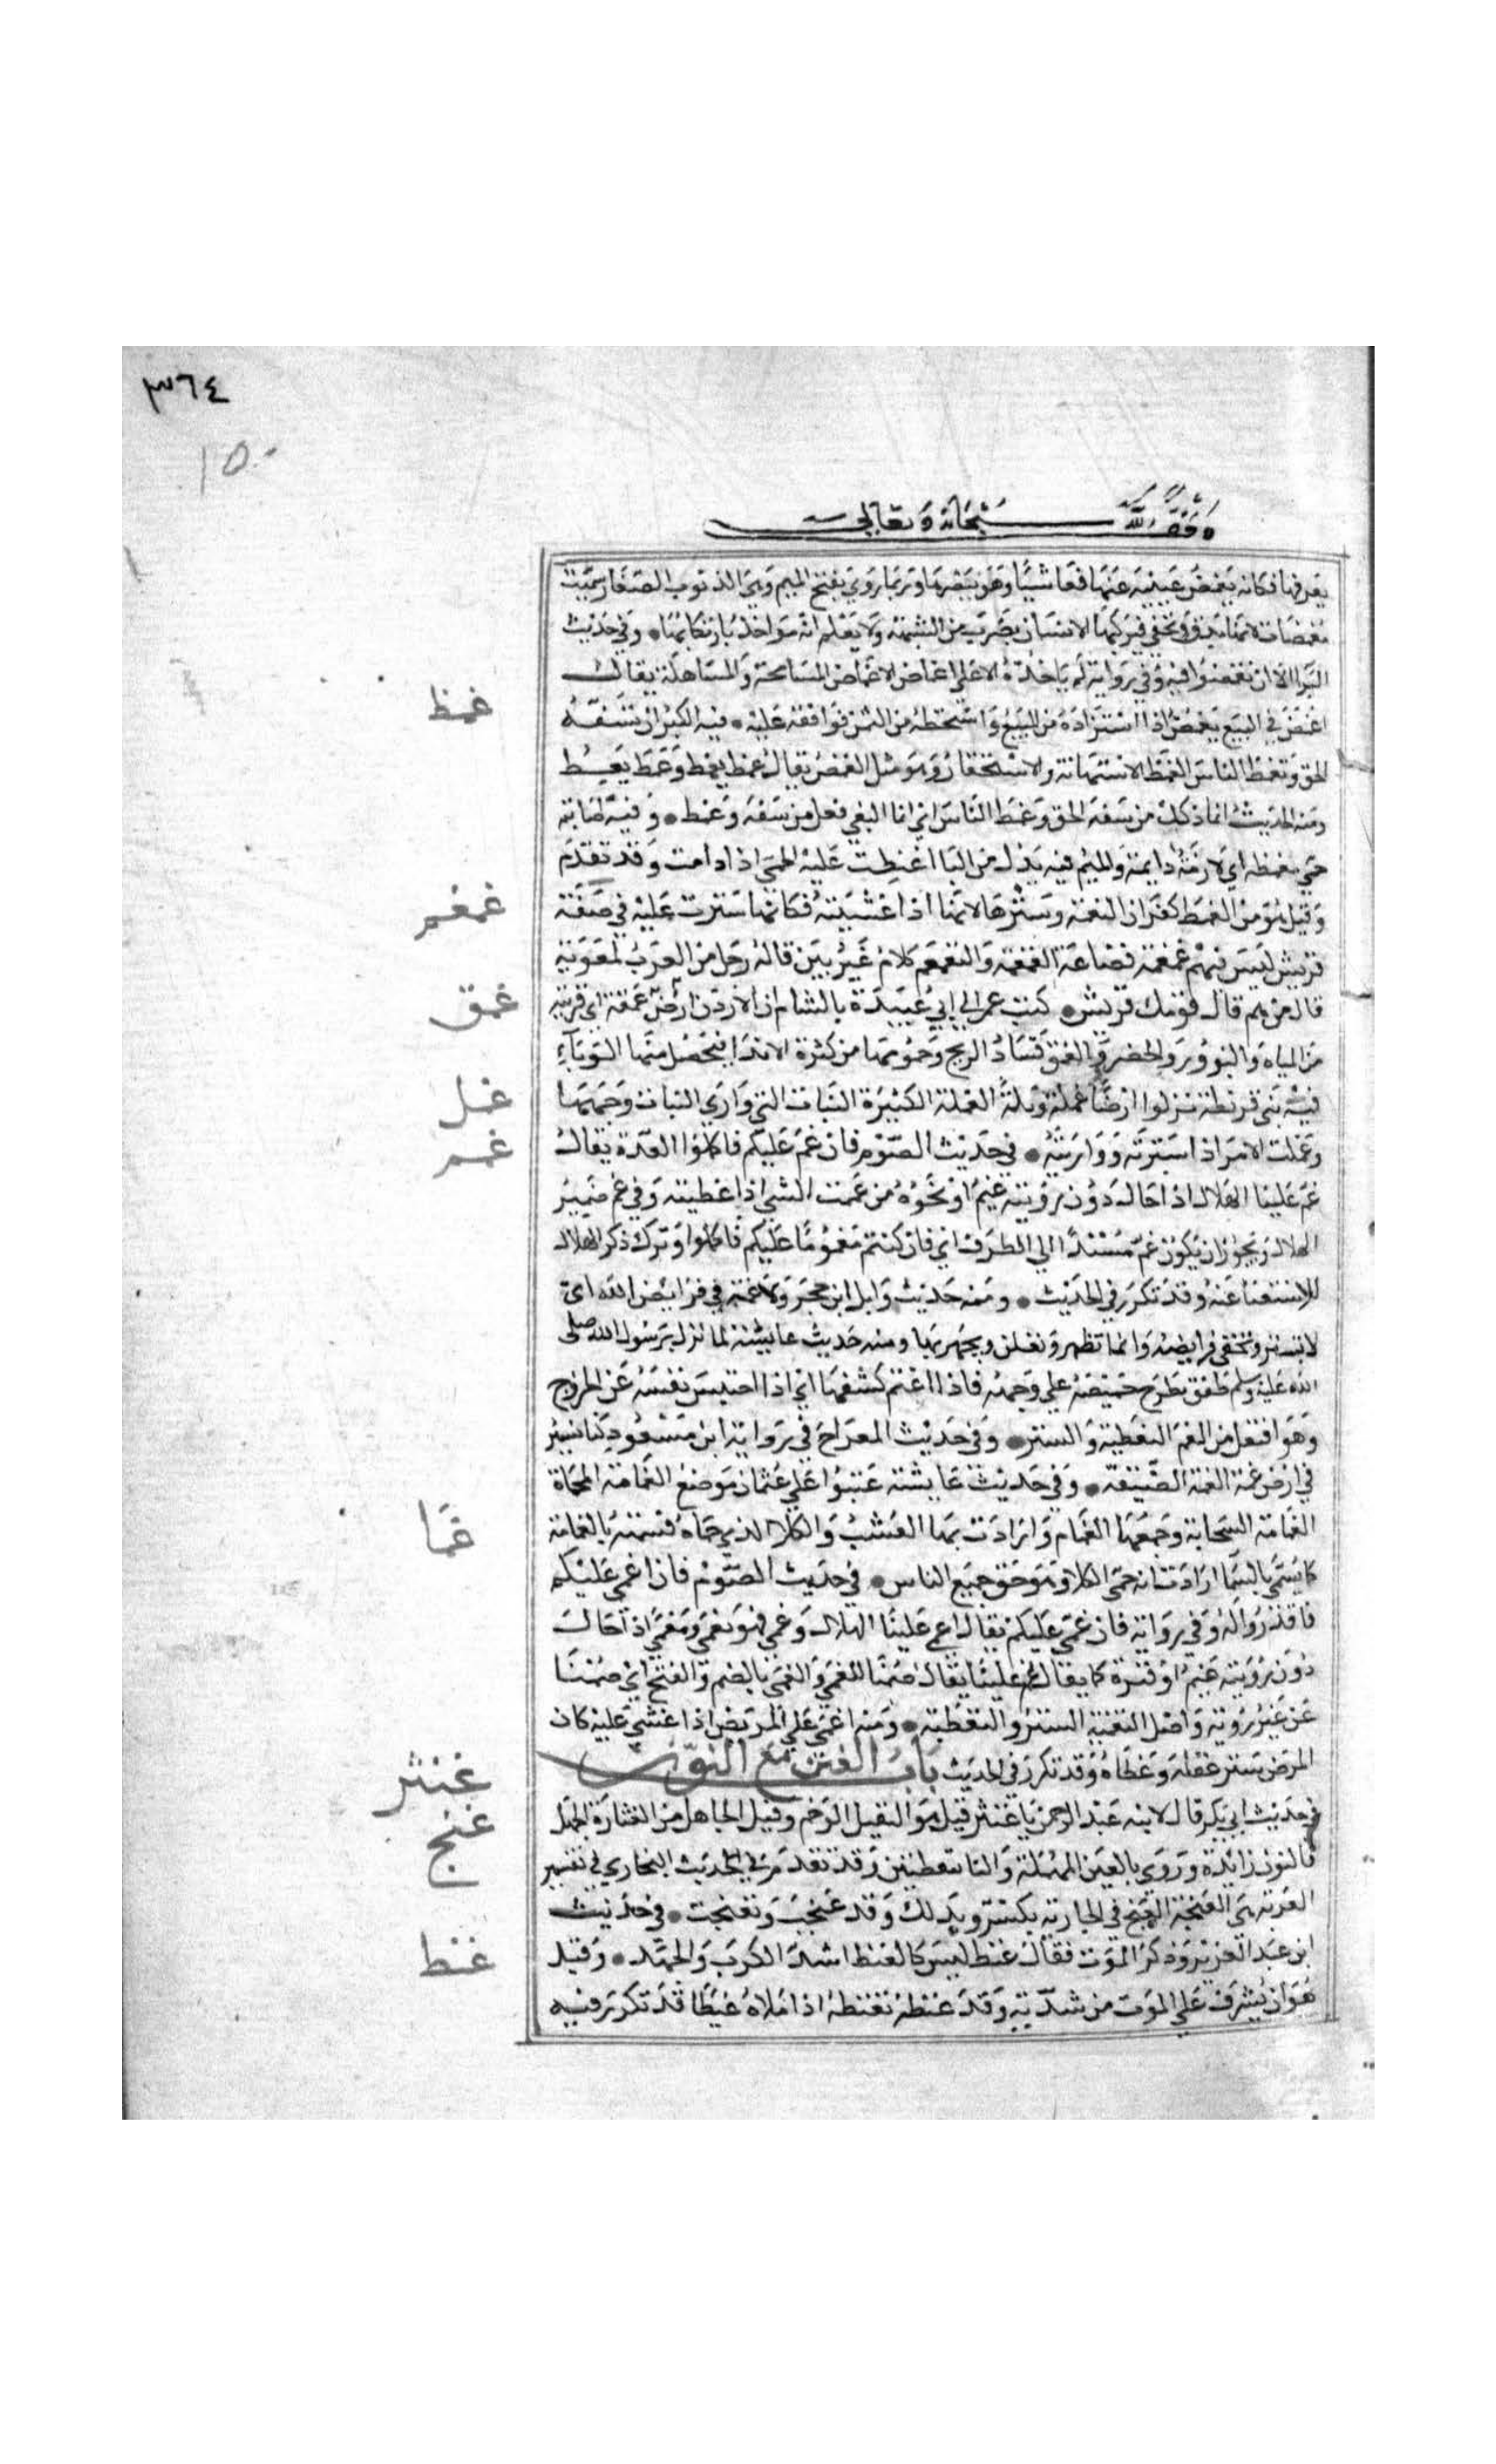 ٣٦٤
١٥٠
وقف لله سبحانه وتعالى
يعرفها فكانه يغمض عينيه عنها تعاشيا وهو يبصرها وربما روي بفتح الميم وهي الذنوب الصغار سميت
مغمضات لانها تدق وتخفى فيركبها الانسان بضرب من الشبهة ولا يعلم انه مواخذ بارتكابها وفي حديث
البراء الا ان تغمضوا فيه وفي رواية لم ياخذه الا على اغماض الاغماض المسامحة والمساهلة يقال
اغمض في البيع يغمض اذا استزاده من المبيع واستحطه من الثمن فوافقه عليه فيه الكبر ان تسفه
غمط
الحق وتغمط الناس الغمط الاستهانة والاستحقار وهو مثل الغمص يقال غمط يغمط وغمط يغمط
ومنه الحديث انما ذلك من سفه الحق وغمط الناس اي انما البغي فعل من سفه وغمط وفيه اصابته
حمى مغمطة اي لازمة دايمة والميم فيه بدل من البا اغبطت عليه الحمى اذا دامت وقد تقدم
وقيل هو من الغمط كفران النعمة وسترها لانها اذا غشيته فكانها سترت عليه في صفة
غمغم
قريش ليس فيهم غمغمة قضاعة الغمغمة والتغمغم كلام غير بين قاله رجل من العرب لمعوية
قال من هم قال قومك قريش كتب عمر الى ابي عبيدة بالشام ان الاردن ارض غمقة اي قريبة
غمق
من المياه والنزور والخضر والغمق فساد الريح وخمومها من كثرة الاندا فيحصل منها الوباء
فيه بني قريظة نزلوا ارضا غملة وبلة الغملة الكثيرة النبات التي وارى النبات وجهها
غمل
وغملت الامر اذا سترته وواريته في حديث الصوم فان غم عليكم فاكملوا العدة يقال
غمم
غم علينا الهلال اذا حال دون رويته غيم او نحوه من غممت الشي اذا غطيته وفي غم ضمير
الهلال ويجوز ان يكون غم مسندا الى الظرف اي فان كنتم مغموما عليكم فاكملوا وترك ذكر الهلال
للاستغنا عنه وقد تكرر في الحديث ومنه حديث وايل ابن حجر ولا غمة في فرايض الله اي
لا تستر وتخفى فرايضه وانما تظهر وتعلن ويجهر بها ومنه حديث عايشة لما نزل برسول الله صلى
الله عليه وسلم طفق يطرح خميصة على وجهه فاذا اغتم كشفها اي اذا احتبس نفسه عن الخروج
وهو افتعل من الغم التغطية والستر وفي حديث المعراج في رواية ابن مسعود كنا نسير
في ارض غمة الغمة الضيقة وفي حديث عايشة عتبوا على عثمان موضع الغمامة المحماة
الغمامة السحابة وجمعها الغمام وارادت بها العشب والكلا الذي حماه فسمته بالغمامة
غما
كما يسمى بالسما ارادت انه حمى الكلا وهو حق جميع الناس في حديث الصوم فان اغمي عليكم
فاقدروا له وفي رواية فان غمي عليكم يقال اغمي علينا الهلال وغمي فهو مغمى ومغمي اذا حال
دون رويته غيم او قترة كما يقال غم علينا يقال صمنا للغمى والغمى بالضم والفتح اي صمنا
عن غير روية واصل التغمية الستر والتغطية ومنه اغمي على المريض اذا غشي عليه كان
المرض ستر عقله وغطاه وقد تكرر في الحديث باب الغين مع النون
في حديث ابي بكر قال لابنه عبد الرحمن يا غنثر قيل هو الثقيل الوخم وقيل الجاهل من الغثارة الجهل
غنثر
والنون زايدة وروي بالعين المهملة والتا بنقطتين وقد تقدم في الحديث البخاري في تفسير
غنج
العربة هي الغنجة الغنج في الجارية تكسر وتدلل وقد غنجت وتغنجت في حديث
ابن عبد العزيز وذكر الموت فقال غنظ ليس كالغنظ الغنظ اشد الكرب والجهد وقيل
غنظ
هو ان يشرف على الموت من شدته وقد غنظه يغنظه اذا املاه غيظا قد تكرر فيه